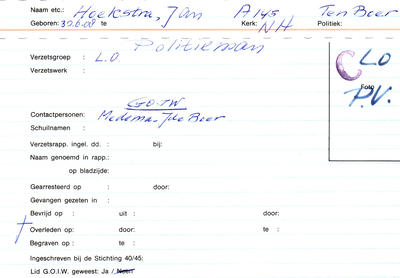 Naam etc.: Hoekstra, Jan A145 Ten Boer
Geboren: 30.6.08 te Kerk: NH Politiek:
Politieman
Verzetsgroep : L.O.
Verzetswerk :
LO
Foto
P.V.
G.O.I.W.
Contactpersonen: Medema, J de Boer
Schuilnamen :
Verzetsrapp. ingel. dd. : bij:
Naam genoemd in rapp.:
op bladzijde:
Gearresteerd op : door:
Gevangen gezeten in :
Bevrijd op : uit : door:
Overleden op: door: te :
Begraven op : te :
Ingeschreven bij de Stichting 40/45:
Lid G.O.I.W. geweest: Ja / Neen